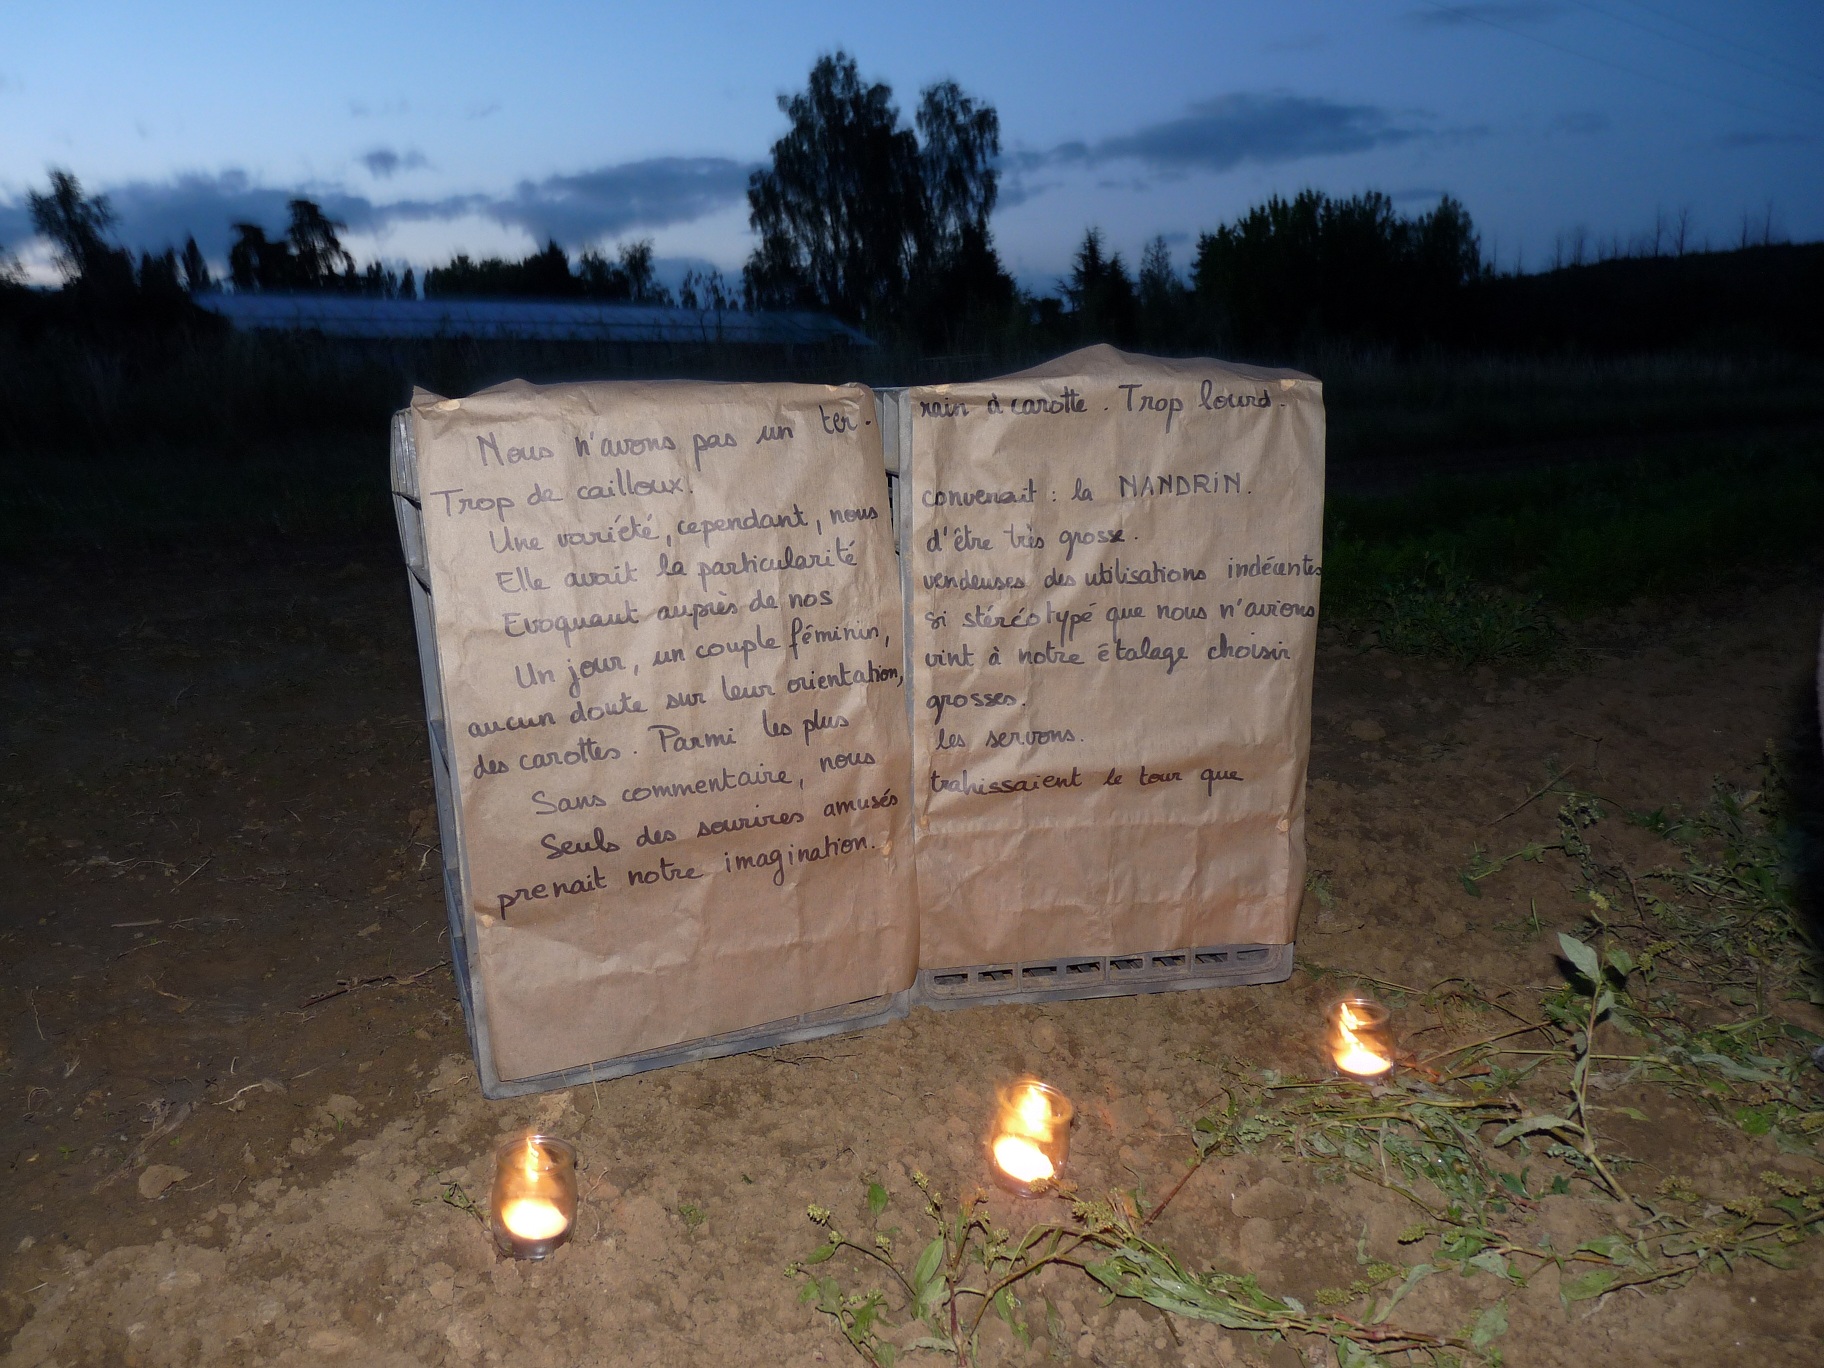 Nous n'avons pas un ter- rain à carotte. Trop lourd.
Trop de cailloux.
Une variété, cependant, nous convenait : la NANDRIN.
Elle avait la particularité d'être très grosse.
Evoquant auprès de nos vendeuses des utilisations indécentes
Un jour, un couple féminin, si stéréotypé que nous n'avions
aucun doute sur leur orientation, vint à notre étalage choisir
des carottes. Parmi les plus grosses.
Sans commentaire, nous les servons.
Seuls des sourires amusés trahissaient le tour que
prenait notre imagination.